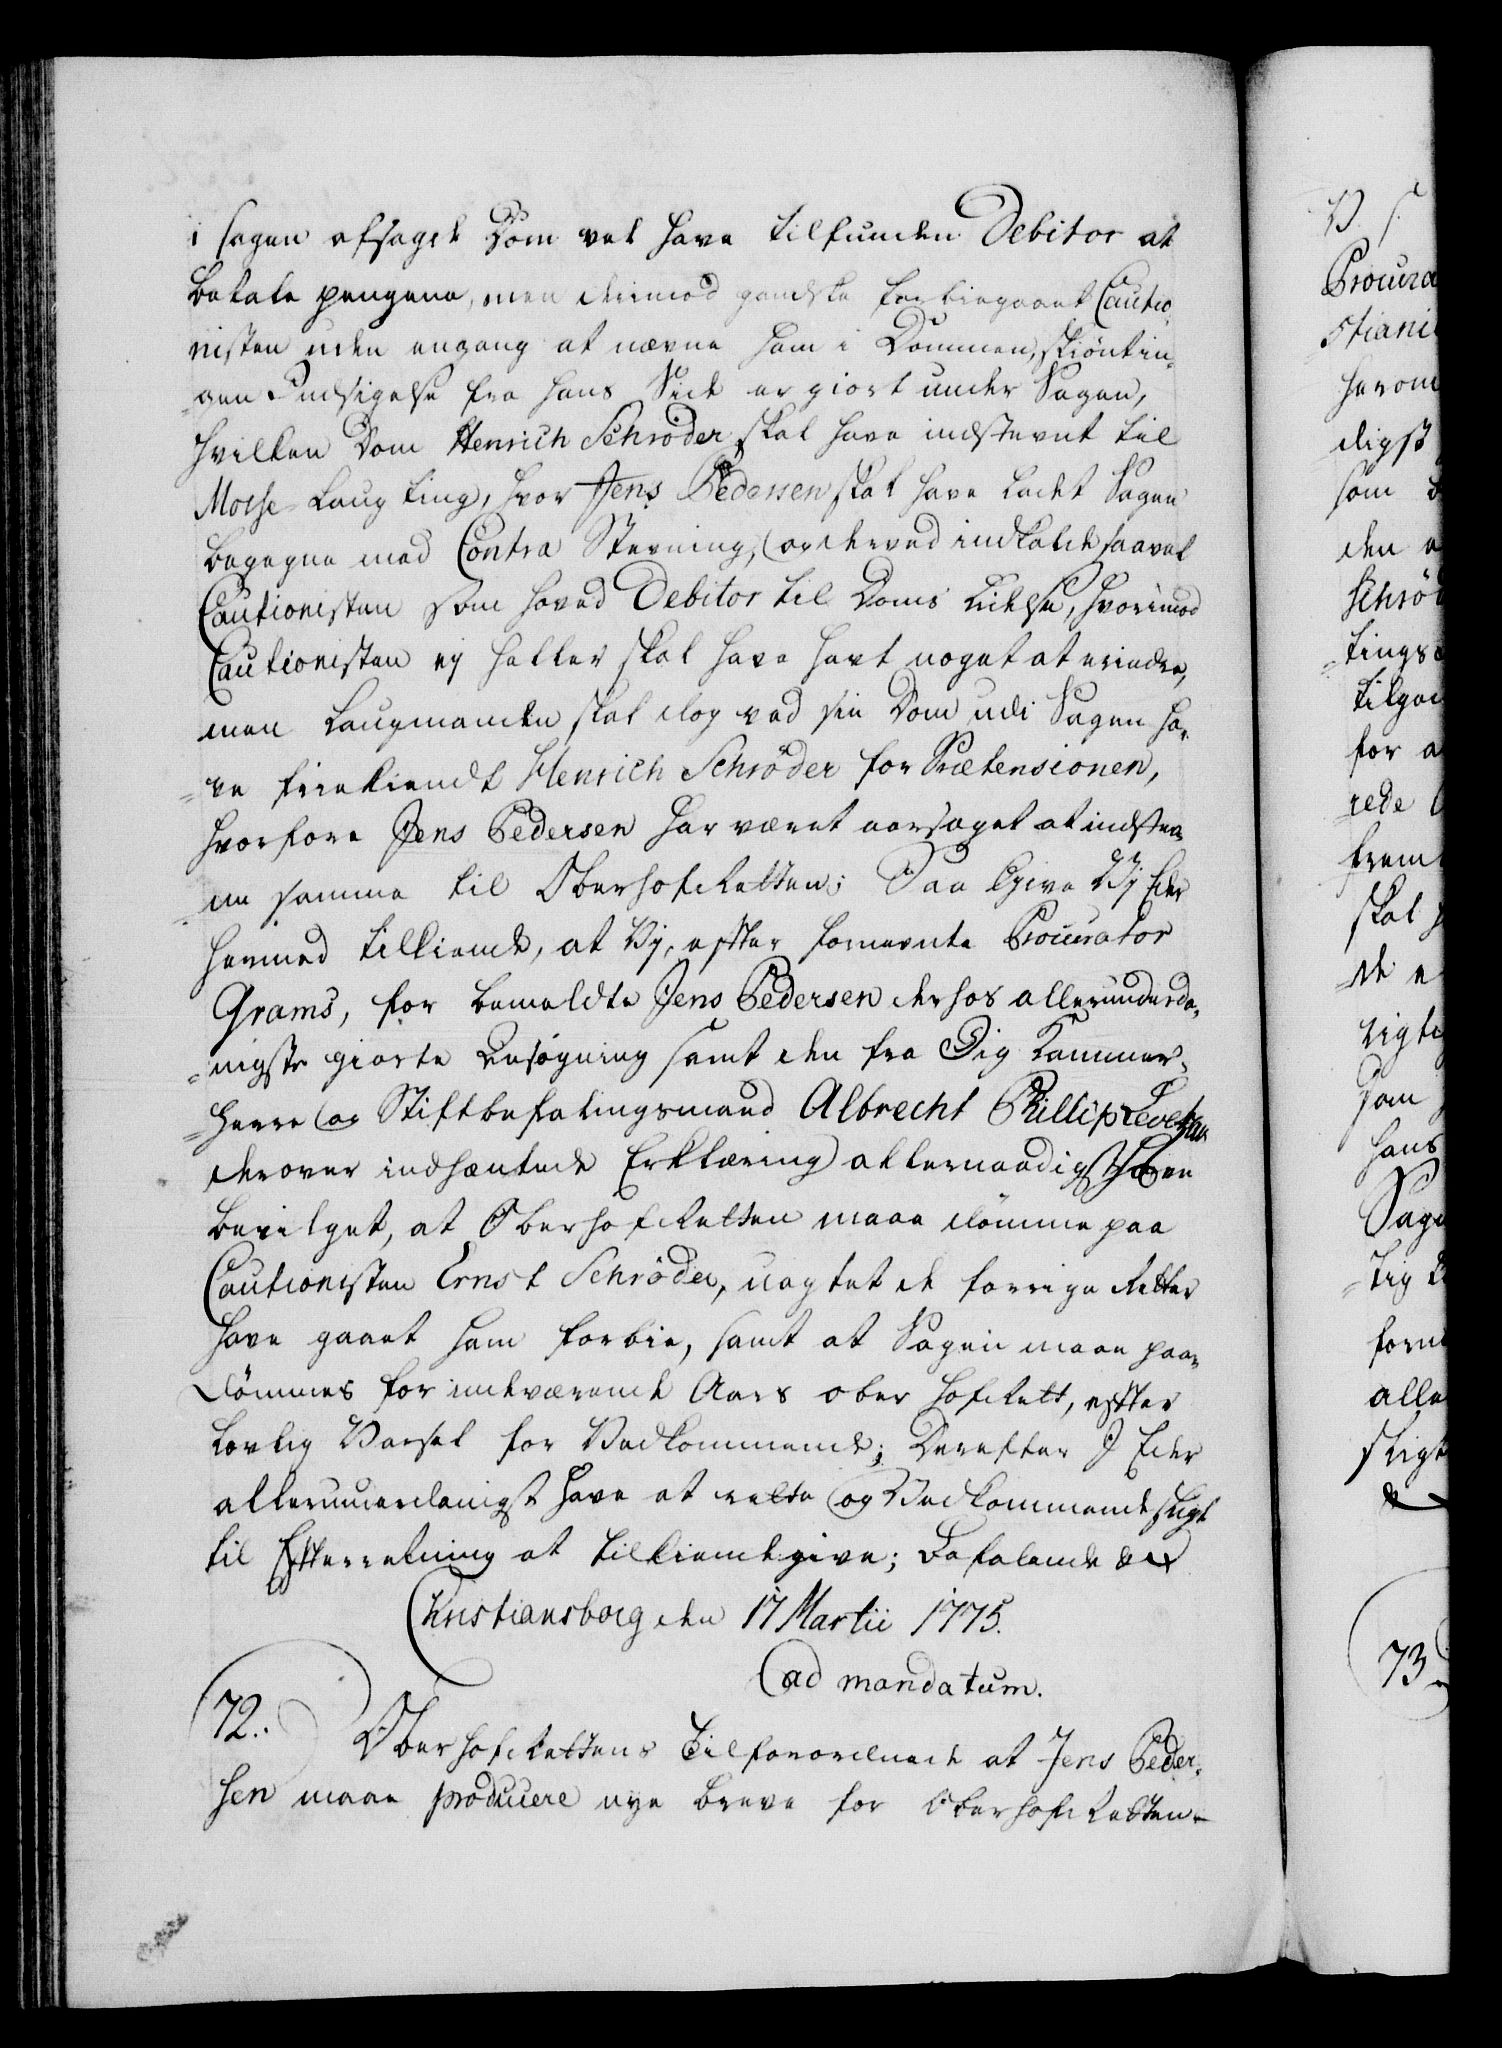 i Sagen afsagde Dom vel have tilfunden Debitor at
betale pengene, men derimod gandske forbiegaaet Cautio,
nisten uden engang at nævne ham i Dommen, skiöntin,
=gen Indsigelse fra hans Side er giort under Sagen,
hvilken Dom Henrich Schröder skal have indstevnt til
Mosse Laugting, hvor Jens Pedersen skal have ladet Sagen
begegne med Contra Stevning, og derved indkaldt saavel
Cautionisten som hoved Debitor til Doms Lidelse, hvorimod
Cautionisten ej heller skal have havt noget at erindre,
men Laugmanden skal dog ved sin Dom udi Sagen ha,
=ve friekiendt Henrich Schröder for Prætensionen,
hvorfore Jens Pedersen har været aarsaget at indstev,
ne samme til Oberhofretten; Saa Give Vi Eder
hermed tilkiende, at Vi, efter fornevnte Procurator
Grams, for bemeldte Jens Pedersen derhos allerunderda,
=nigst giorte Ansøgning samt den fra Dig Kammer,
=herre og Stiftbefalingsmand Albrecht Phillip Levetzau
derover indhæntede Erklæring allernaadigst have
bevilget, at Oberhofretten maae dömme paa
Cautionisten Ernst Schröder, uagtet de forrige Retter
have gaaet ham forbie, samt at Sagen maae paa,
dömmes for indeværende Aars Oberhofrett, efter
lovlig Varsel for Vedkommende; Derefter I Eder
allerunderdanigst have at rette og Vedkommende sligt
til Efterretning at tilkiendegive; Befalende &c
Christiansborg den 17 Martii 1775.
ad mandatum.
72.
Oberhofrettens Tilforordnede at Jens Peder,
sen maae producere nye breve for Oberhofretten.
V. S.
Procura
stiani
herom
digst
som
den
Schröd
=tings
tilgar
for a
rede
frem
skal
de e
rigti
som
hans
Sage
=tig
forn
alle
sligt
73